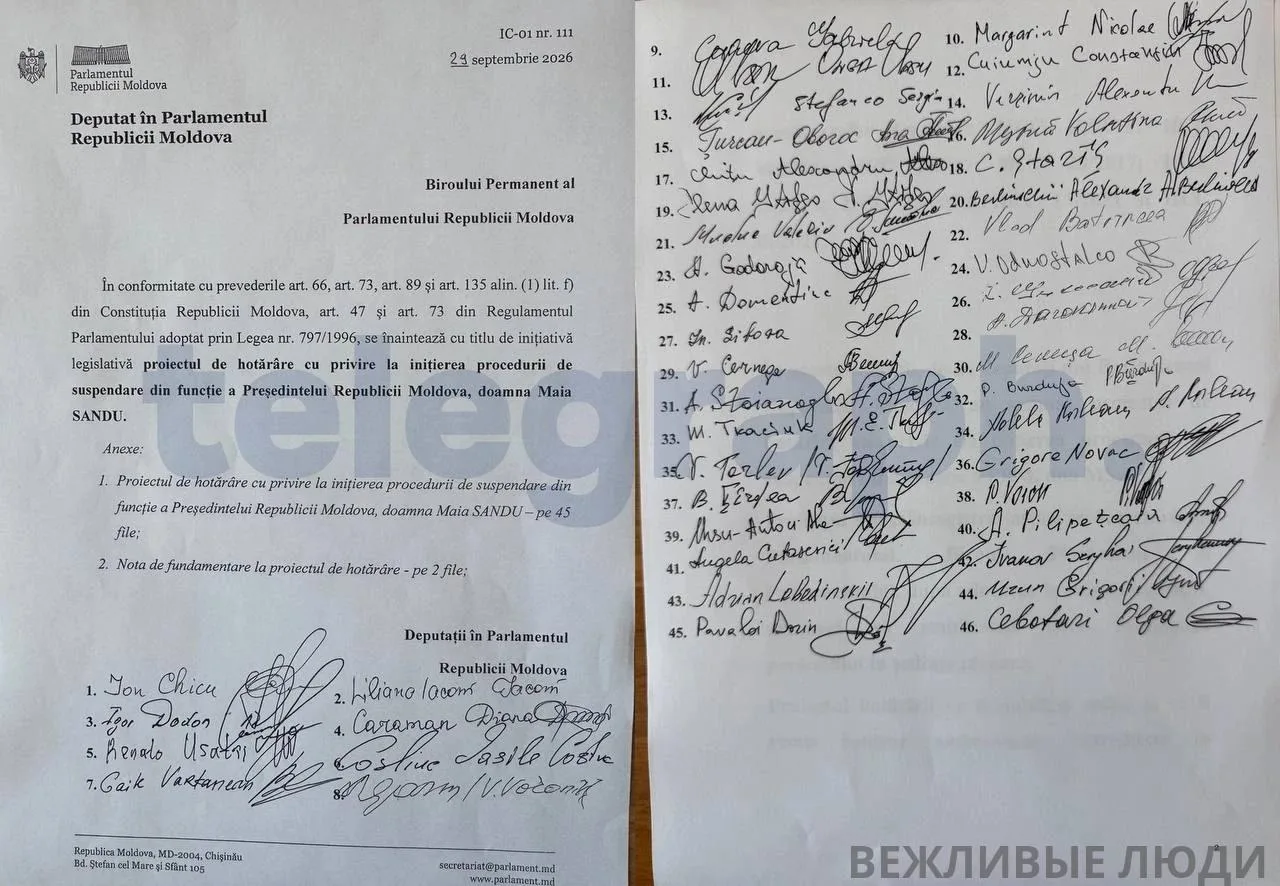 IC-01 nr. 111
29 septembrie 2026
Parlamentul
Republicii Moldova
Deputat în Parlamentul
Republicii Moldova
Biroului Permanent al
Parlamentului Republicii Moldova
În conformitate cu prevederile art. 66, art. 73, art. 89 și art. 135 alin. (1) lit. f)
din Constituția Republicii Moldova, art. 47 și art. 73 din Regulamentul
Parlamentului adoptat prin Legea nr. 797/1996, se înaintează cu titlu de inițiativă
legislativă proiectul de hotărâre cu privire la inițierea procedurii de
suspendare din funcție a Președintelui Republicii Moldova, doamna Maia
SANDU.
Anexe:
1. Proiectul de hotărâre cu privire la inițierea procedurii de suspendare din
funcție a Președintelui Republicii Moldova, doamna Maia SANDU – pe 45
file;
2. Nota de fundamentare la proiectul de hotărâre - pe 2 file;
Deputații în Parlamentul
Republicii Moldova
1. Ion Chicu
2. Ililiana Iacom Iacom
3. Igor Dodon
4. Caraman Diana
5. Renato Usatîi
Costiuc Vasile Costiuc
7. Gaik Vartanean
8.
Republica Moldova, MD-2004, Chișinău
Bd. Ștefan cel Mare și Sfânt 105
secretariat@parlament.md
www.parlament.md
telegraph.
9.
10. Margarint Nicolae
11.
12. Cuiumju Constantin
13. Stefanco Sergiu
14. Verejinin Alexandru
15. Țurcan-Oboroc Ana
16. Valentina
17. Chitu Alexandru
18.
19. Elena
20. Berlinschii Alexandr A. Berlinschii
21. Valeriu
22. Vlad Batrîncea
23. A. Godoroja
24. V. Odnostalco
25. A. Domentiuc
26.
27. In. Sitova
28.
29. V. Cernega
30. M. Cenușa
31. A. Stoianoglo
32. P. Burduja P. Burduja
33. M. Tkaciuk
34. Adela Raileanu A. Raileanu
35. V. Tarlev
36. Grigore Novac
37. B. Țîrdea
38. P. Voicu
39. Ursu-Antoci Ala
40. A. Pilipețcaia
41. Angela Cutasevici
42. Ivanov Serghei
43. Adrian Lebedinschi
44. Uzun Grigorii
45. Pavaloi Dorin
46. Cebotari Olga
2
ВЕЖЛИВЫЕ ЛЮДИ